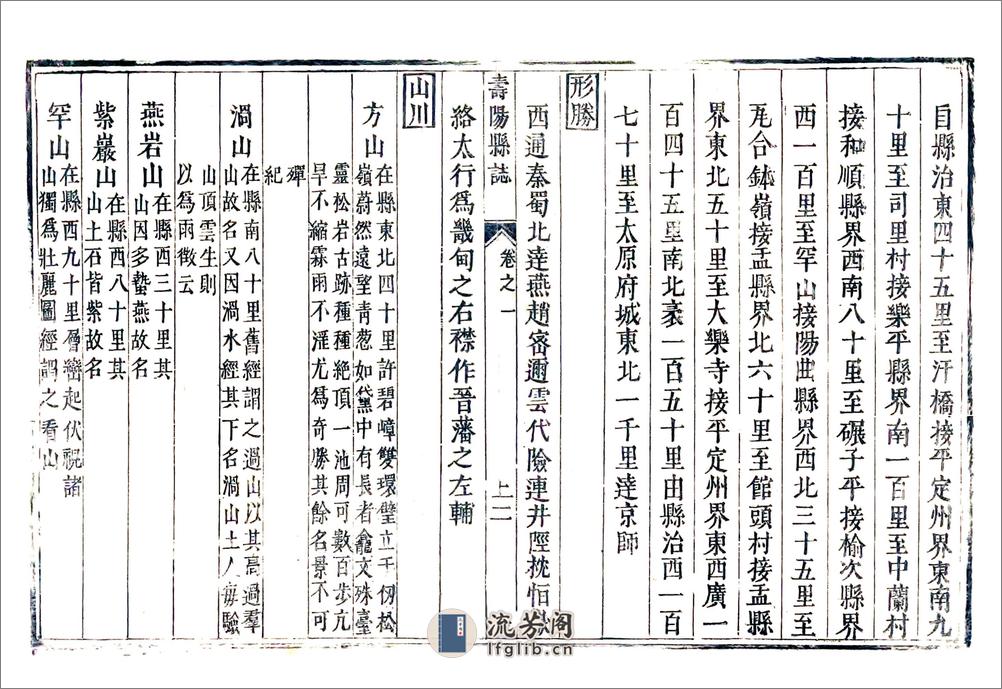 自縣治東四十五里至汗橋接平定州界東南九
十里至司里村接樂平縣界南一百里至中蘭村
接和順縣界西南八十里至碾子平接榆次縣界
西一百里至罕山接陽曲縣界西北三十五里至
合鉢嶺接盂縣界北六十里至館頭村接盂縣
界東北五十里至大樂寺接平定州界東西廣一
百四十五里南北袤一百五十里由縣治西一百
七十里至太原府城東北一千里達京師
形勝
西通秦蜀北達燕趙密邇雲代險連井陘枕恒
壽陽縣誌 卷之一 上二
絡太行爲畿甸之右襟作晉藩之左輔
山川
方山
在縣東北四十里許碧嶂雙環璧立千仞松
嶺蔚然遠望青葱如黛中有長者龕文殊臺
靈松岩古跡種種絕頂一池周可數百步亢
旱不縮霖雨不溢尤爲奇勝其餘名景不可
殫
紀
渦山
在縣南八十里舊經謂之過山以其高過羣
山故名又因渦水經其下名渦山土人每驗
山頂雲生則
以爲雨徵云
燕岩山
在縣西三十里其
山因多蟄燕故名
紫巖山
在縣西八十里其
山土石皆紫故名
罕山
在縣西九十里層巒起伏視諸
山獨爲壯麗圖經謂之看山
流芳阁
lfglib.cn